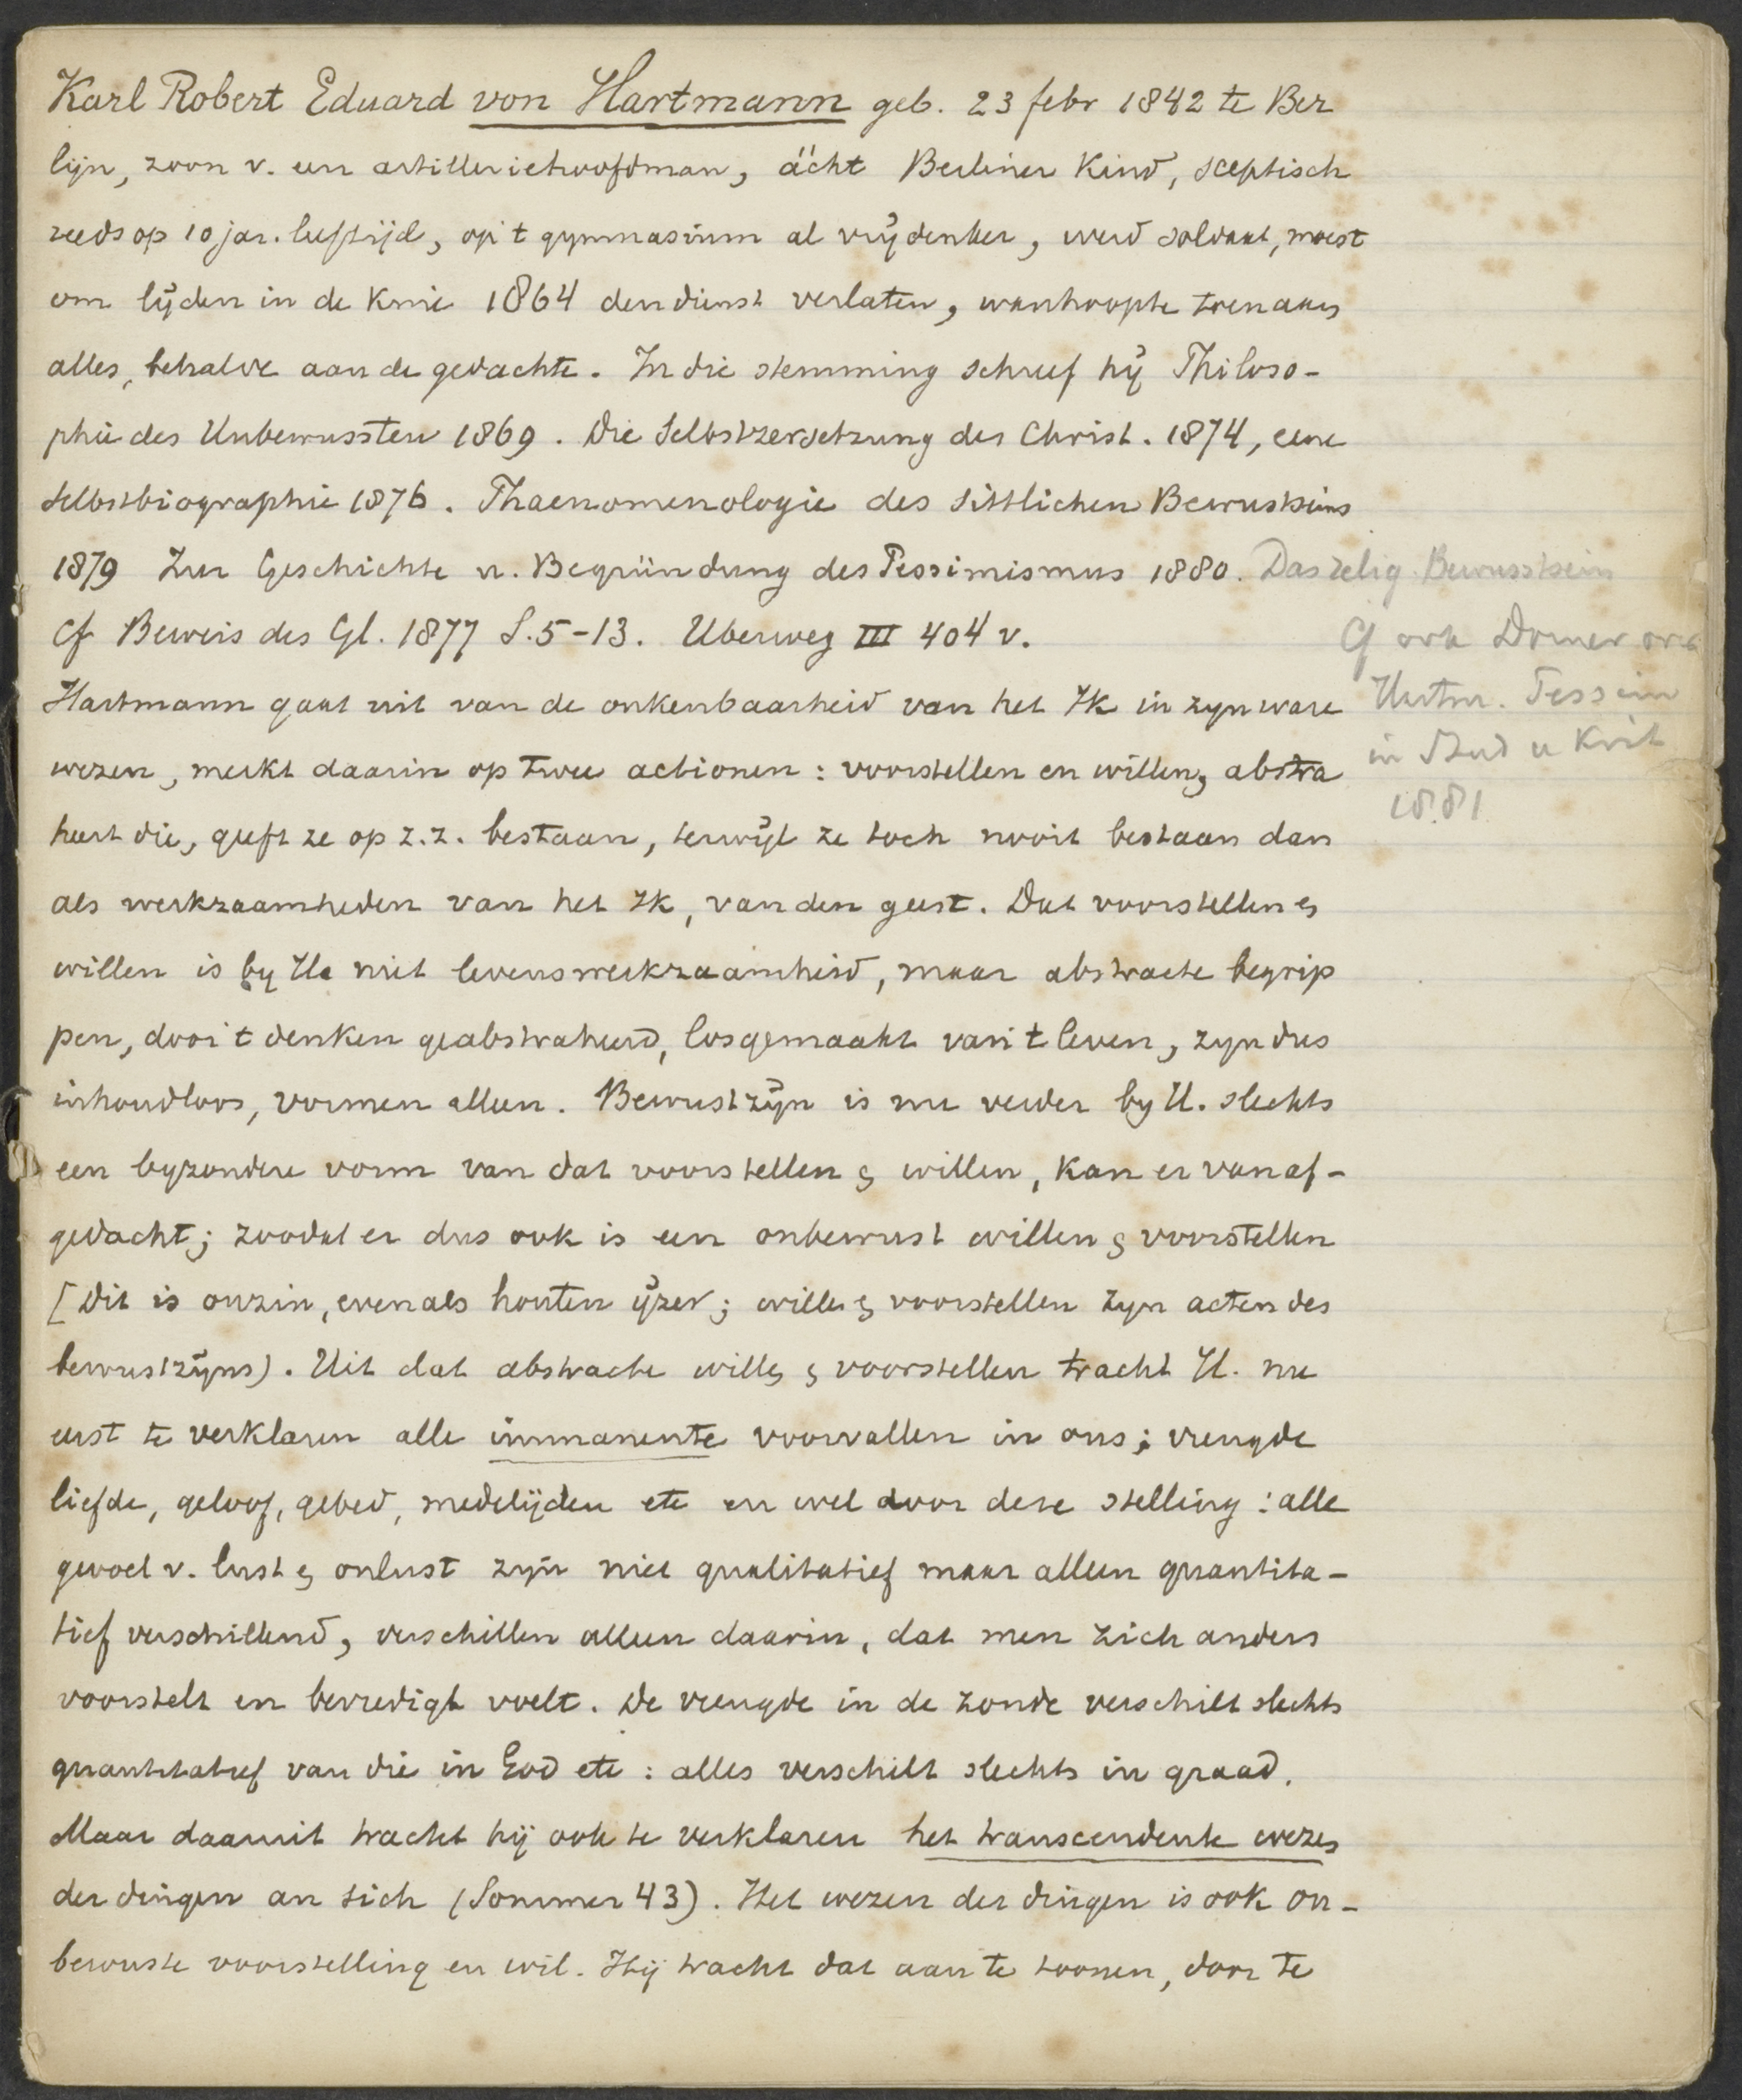 Karl Robert Eduard von Hartmann geb. 23 febr 1842 te Ber
lijn, zoon v. een artilleriehoofdman, ächt Berliner Kind, sceptisch
reeds op 10 jar. leeftijd, op 't gymnasium al vrijdenker, werd soldaat, moest
om lijden in de knie 1864 den dienst verlaten, wanhoopte toen aan
alles, behalve aan de gedachte. In die stemming schreef hij Philoso-
phie des Unbewussten 1869. Die Selbstzersetzung des Christ. 1874, eene
Selbstbiographie 1876. Phaenomenologie des sittlichen Bewustseins
1879 Zur Geschichte u. Begründung des Pessimismus 1880. Das relig. Bewusstsein
Cf Beweis des Gl. 1877 S. 5-13. Uberweg III 404 v.
Cf ook Dorner over
Hartm. Pessim
in Stud u Krit
1881
Hartmann gaat uit van de onkenbaarheid van het Ik in zyn ware
wezen, merkt daarin op twee actionen: voorstellen en willen, abstra
heert die, geeft ze op z.z. bestaan, terwijl ze toch nooit bestaan dan
als werkzaamheden van het Ik, van den geest. Dat voorstellen en
willen is by Ha niet levenswerkzaamheid, maar abstracte begrip
pen, door 't denken geabstraheerd, losgemaakt van 't leven, zyn dus
inhoudloos, vormen alleen. Bewustzijn is nu verder by H. slechts
een byzondere vorm van dat voorstellen en willen, kan er van af-
gedacht; zoodat er dus ook is een onbewust willen en voorstellen
[Dit is onzin, evenals houten ijzer; willen en voorstellen zyn acten des
bewustzijns). Uit dat abstracte willen en voorstellen tracht H. nu
eerst te verklaren alle immanente voorvallen in ons; vreugde
liefde, geloof, gebed, medelijden etc en wel door deze stelling: alle
gevoel v. lust en onlust zyn niet qualitatief maar alleen quantita-
tief verschillend, verschillen alleen daarin, dat men zich anders
voorstelt en bevredigt voelt. De vreugde in de zonde verschilt slechts
quantitatief van die in God etc: alles verschilt slechts in graad.
Maar daaruit tracht hij ook te verklaren het transcendente wezen
der dingen an sich (Sommer 43). Het wezen der dingen is ook on-
bewuste voorstelling en wil. Hij tracht dat aan te toonen, door te